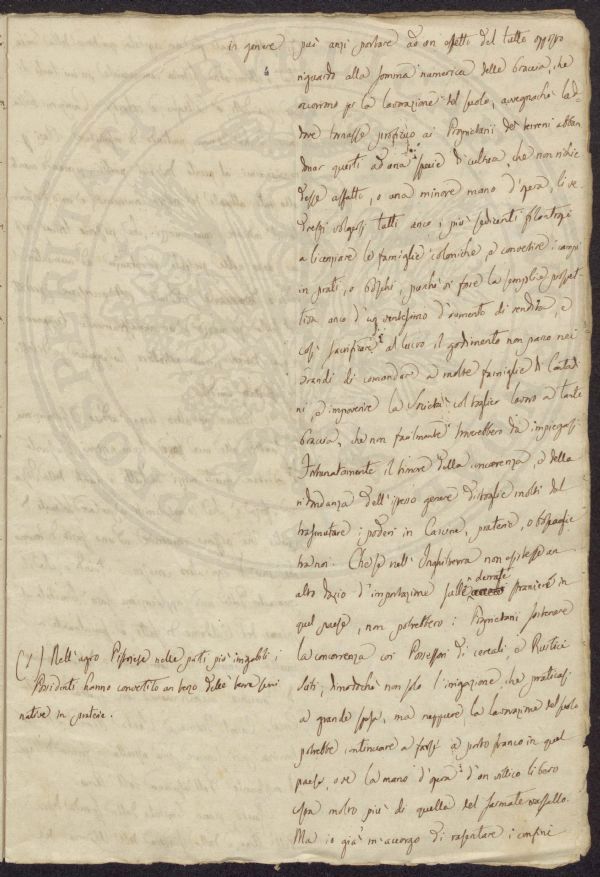 in genere può anzi portare ad un effetti del tutto opposto
riguardo alla somma numerica delle braccia, che
occorrono per la lavorazione del suolo, avvegnachè lad-
dove tornasse proficuo ai Proprietarii dei terreni abban
donar questi ad una specie di cultura, che non richie
desse affatto, o una minore mano d'opera, si ve-
drebbe volgersi tutti anco i più sedicenti filantropi
a licenziare le famiglie coloniche, e convertire i campi
in prati, o boschi, purchè vi fosse la semplice prospet
tiva anco d'un ventesimo d'aumento di rendita, e
così sacrificare al lucro il godimento non parco nei
Grandi di comandare a molte famiglie di Contadi
ni, e impoverire la Società col toglier lavoro a tante
braccia, che non facilmente troverebbero da impiegarsi
Fortunatamente il timore della concorrenza, e della
ridondanza dell'istesso genere distoglie molti dal
trasmutare i poderi in Cascine, praterie, o boscaglie
tra noi. Che se nell'Inghilterra non esistesse un
alto Dazio d'importazione sulle derrate straniere in
quel paese, non potrebbero i Proprietarii sostenere
la concorrenza coi Possessori di cereali, e Rustici
dati, dimodochè non solo l'irrigazione che praticasi
a grande spesa, ma neppure la lavorazione del suolo
potrebbe continuare a farsi a porto franco in quel
paese, ove la mano d'opera d'un rustico libero
costa molto più di quella del sarmate vassallo.
Ma io già m'accorgo di rasentare i confini
(1) Nell'agro Pistojese nelle parti più irrigabili, i
Possidenti hanno convertito un terzo delle terre semi
native in praterie.